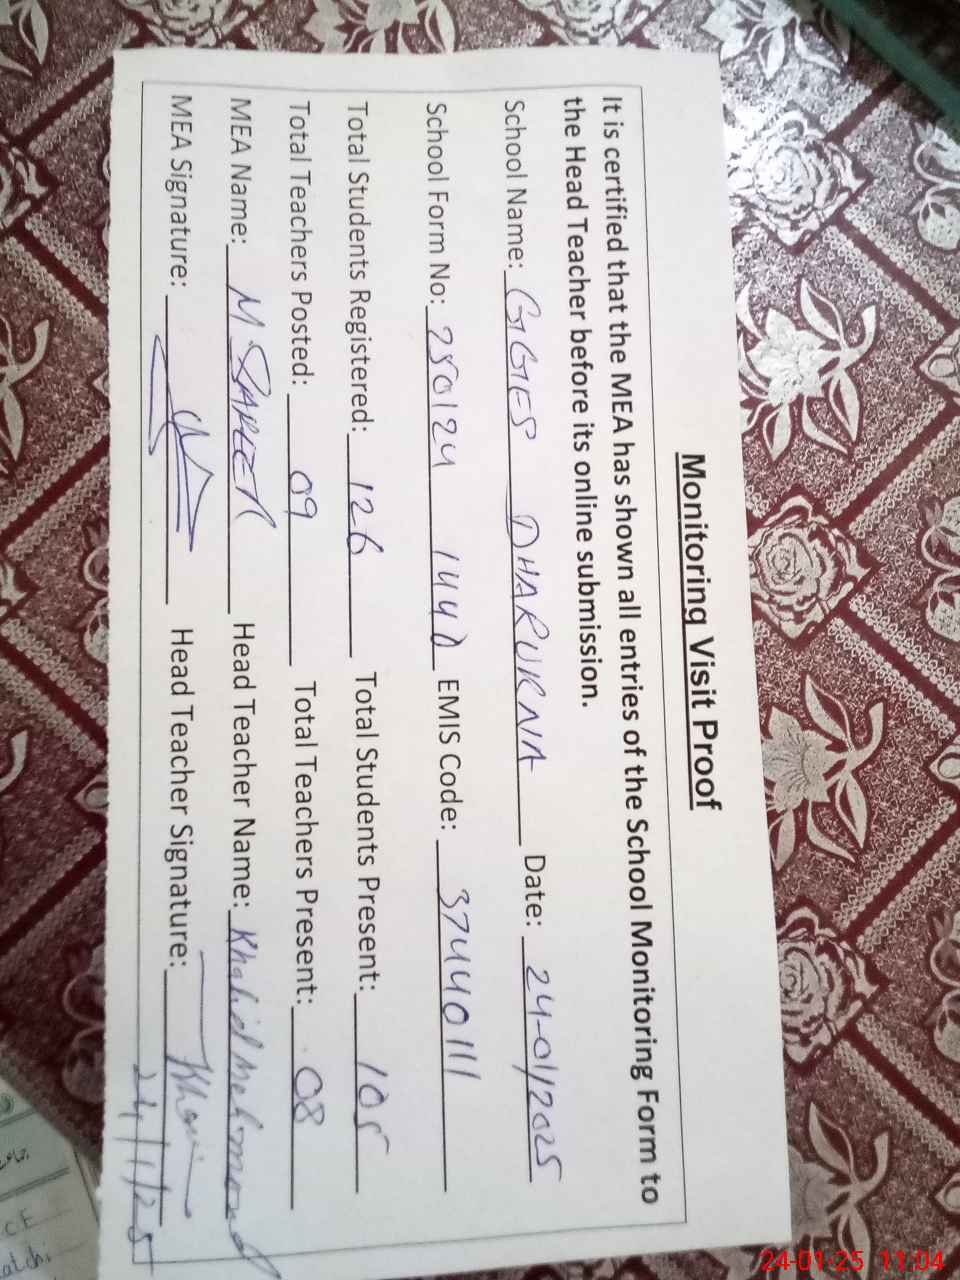 Monitoring Visit Proof
It is certified that the MEA has shown all entries of the School Monitoring Form to
the Head Teacher before its online submission.
School Name: GGES DHARURNA Date: 24-01/2025
School Form No: 280124 1440 EMIS Code: 37440111
Total Students Registered: 126 Total Students Present: 105
Total Teachers Posted: 09 Total Teachers Present: 08
MEA Name: M Head Teacher Name: Khalid Mehmood
MEA Signature: Head Teacher Signature:
24/1/25
CE
24-01-25 11:04